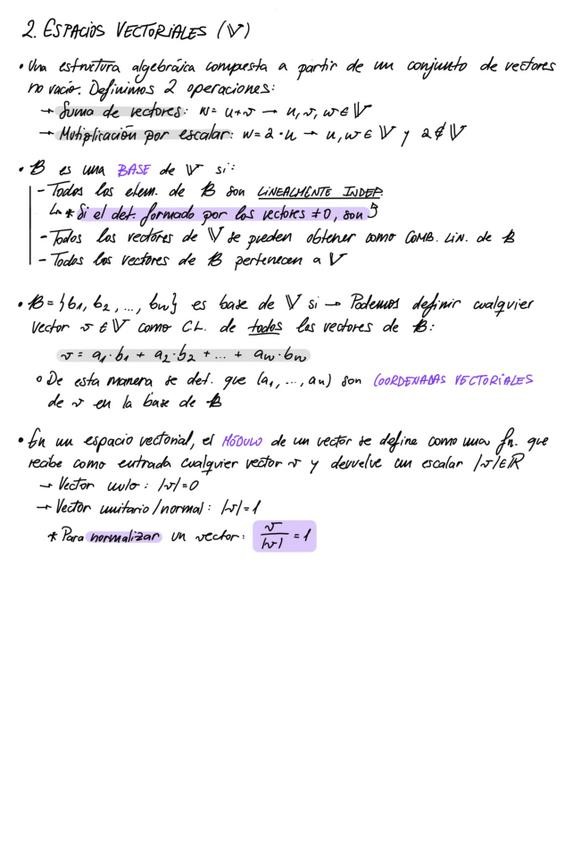 2. ESPACIOS VECTORIALES (𝕍)
• Una estructura algebráica compuesta a partir de un conjunto de vectores
no vacío. Definimos 2 operaciones:
→ Suma de vectores: w= u+v → u, v, w ∈ 𝕍
→ Mutiplicación por escalar: w = 2·u → u, w ∈ 𝕍 y 2 ∉ 𝕍
• B es una BASE de 𝕍 si:
- Todos los elem. de B son LINEALMENTE INDEP.
↳ * Si el det. formado por los vectores ≠0, son ↑
- Todos los vectores de 𝕍 se pueden obtener como COMB. LIN. de B
- Todos los vectores de B pertenecen a 𝕍
• B = {b1, b2, ..., bn} es base de 𝕍 si → Podemos definir cualquier
vector v ∈ 𝕍 como CL. de todos los vectores de B:
v = a1·b1 + a2·b2 + ... + an·bn
◦ De esta manera se def. que (a1, ..., an) son COORDENADAS VECTORIALES
de v en la base de B
• En un espacio vectorial, el MÓDULO de un vector se define como una fn. que
recibe como entrada cualquier vector v y devuelve un escalar |v| ∈ ℝ
→ Vector nulo: |v|=0
→ Vector unitario/normal: |v|=1
* Para normalizar un vector: v/|v| = 1